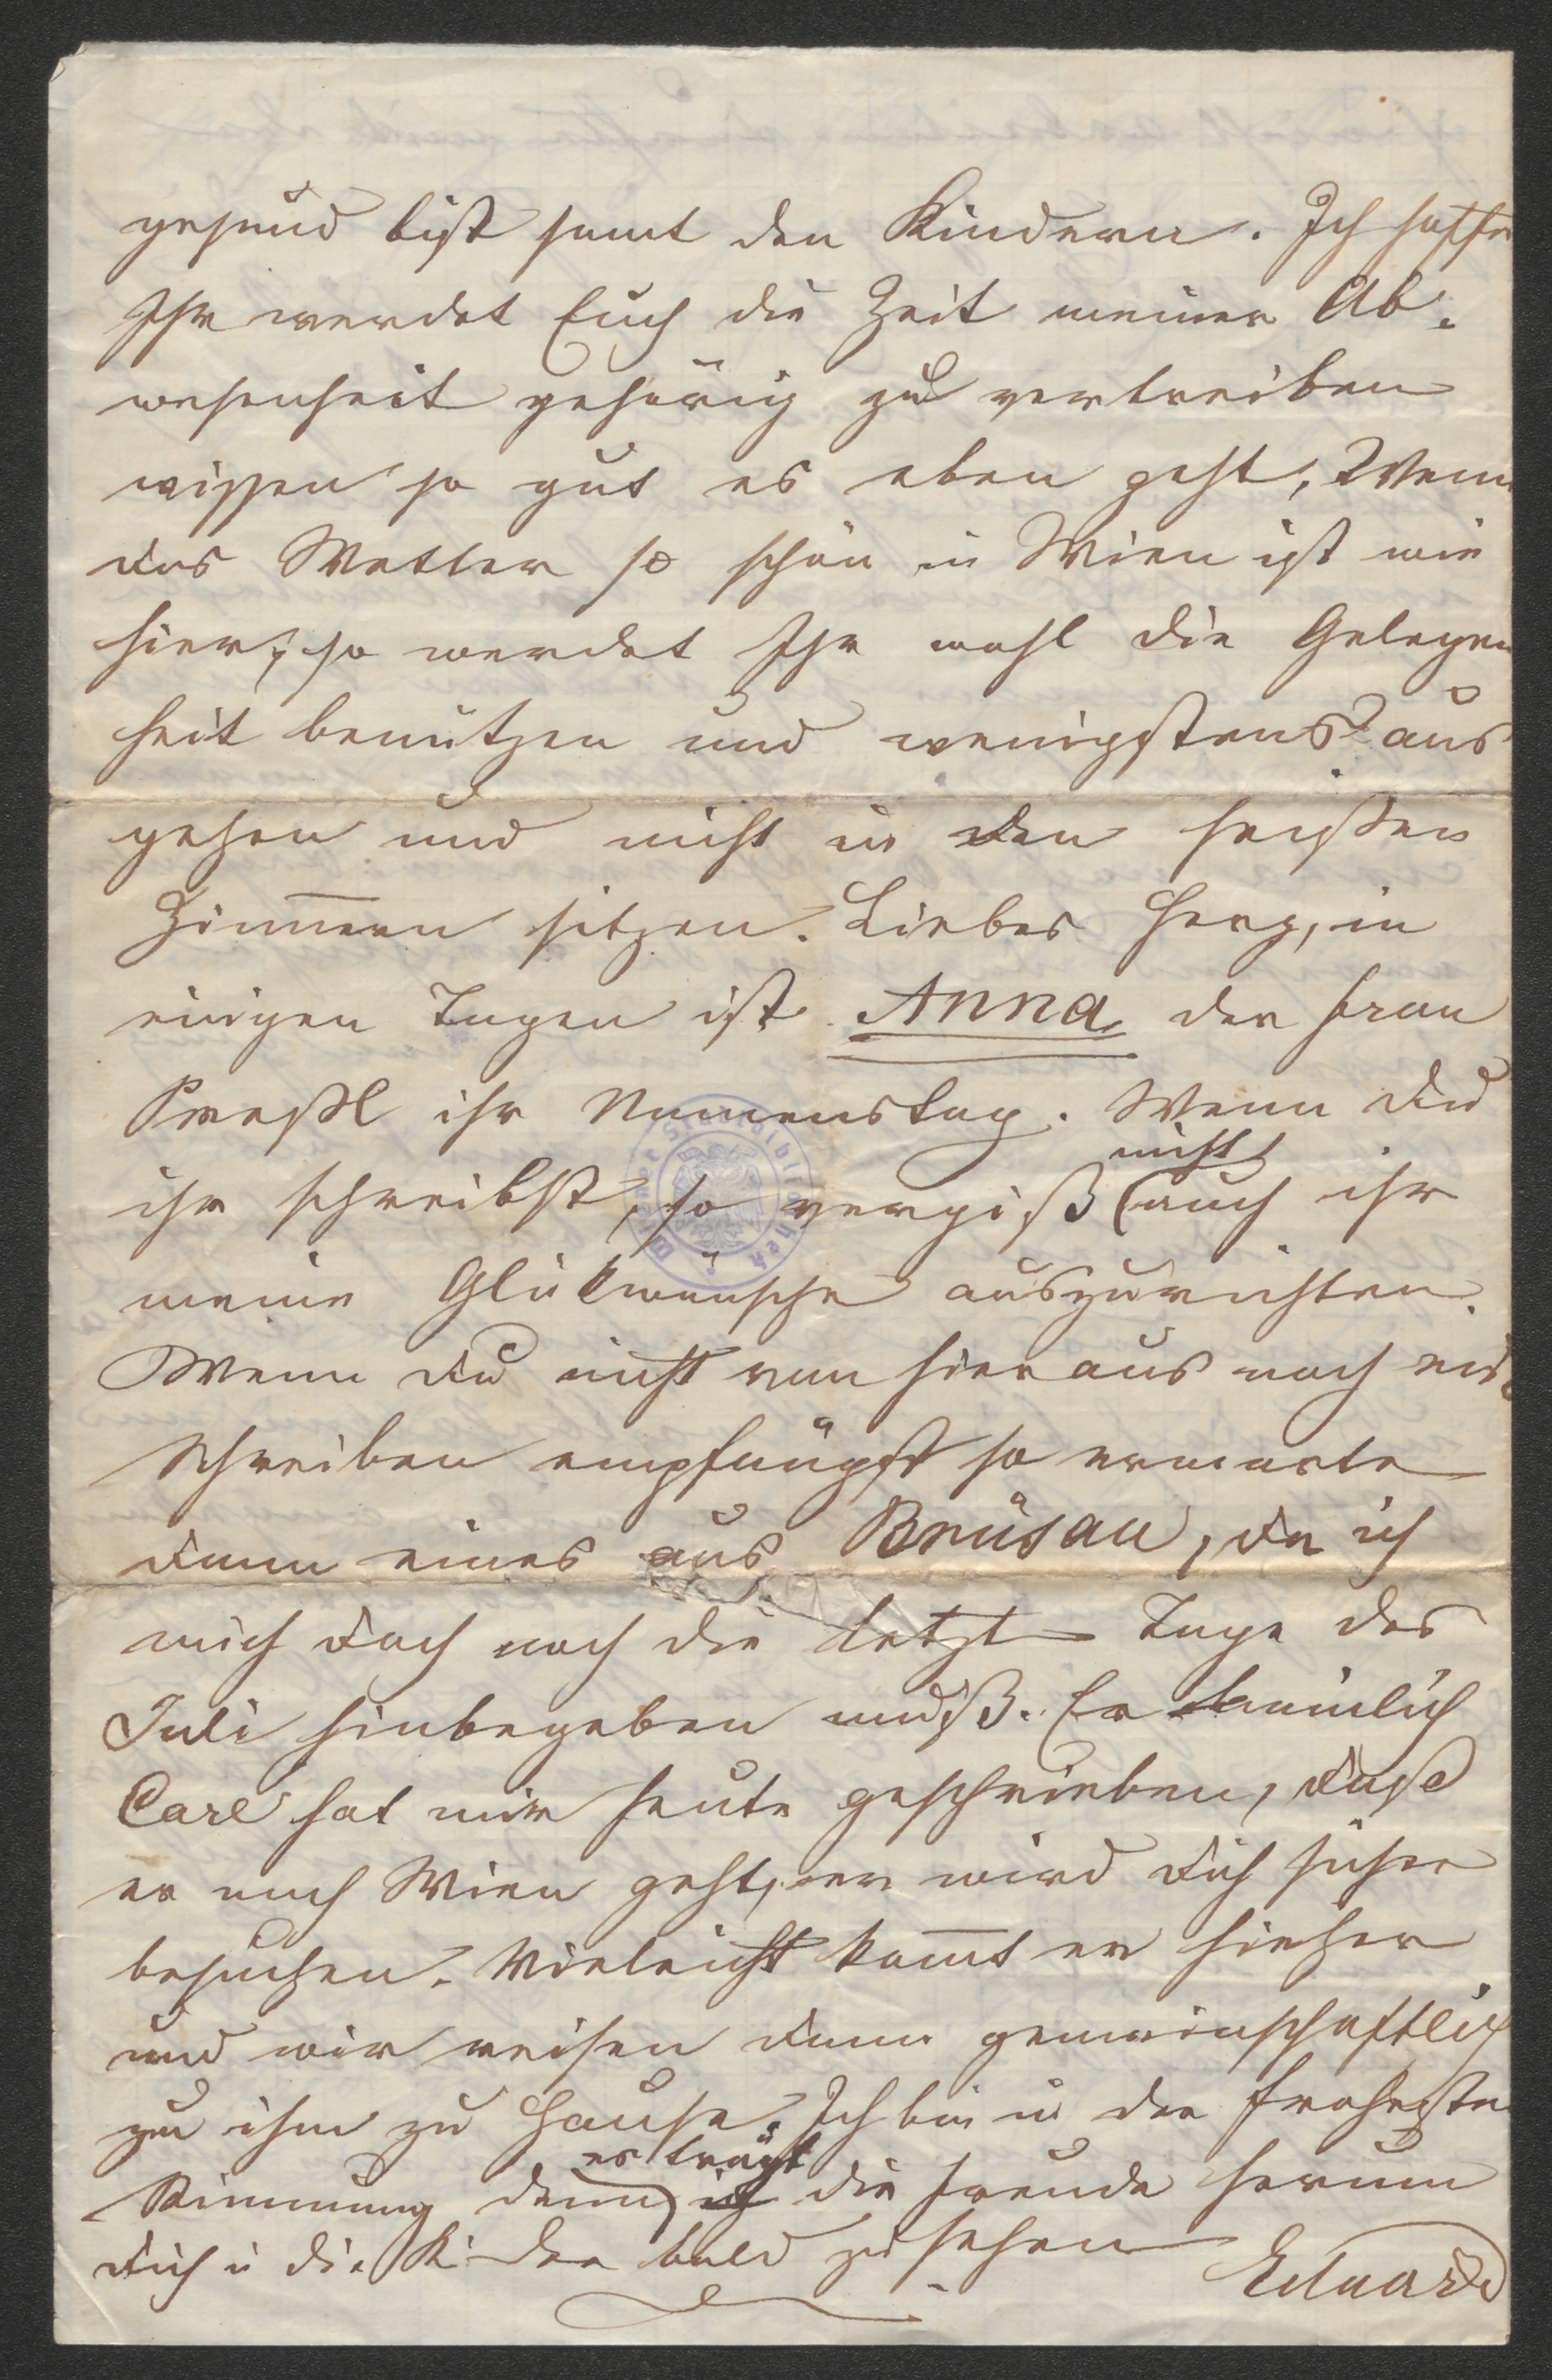 gesund bist samt den Kindern. Ich hoffe
Ihr werdet Euch die Zeit meiner Ab-
wesenheit gehörig zu vertreiben
wissen so gut es eben geht, Wenn
das Wetter so schön in Wien ist wie
hier, so werdet Ihr wohl die Gelegen
heit benützen und wenigstens aus
gehen und nicht in den heißen
Zimmern sitzen. Liebes Herz, in
einigen Tagen ist Anna der Frau
Preßl ihr Namenstag. Wenn Du
nicht
ihr schreibst, so vergiß auch ihr
meine Glükwünsche auszurichten.
Wenn Du nicht von hier aus noch ein
Schreiben empfängst so erwarte
dann eines aus Brüsau, da ich
mich doch noch die letzten Tage des
Juli hinbegeben muß. Er nämlich
Carl hat mir heute geschrieben, daß
er nach Wien geht, er wird Dich sicher
besuchen. Vieleicht kommt er hieher
und wir reisen dann gemeinschaftlich
zu ihm zu Hause. Ich bin in der frohesten
es trägt
Stimmung denn die Freude herum
Dich u die Kinder bald zu sehen
Eduard
Wiener Stadtbibliothek